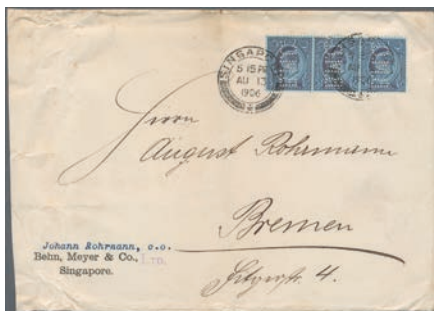 SINGAPO
5 15 PM
AU 13
1906
Herrn
August Rohrmann
Bremen
Johann Rohrmann, c.o.
Behn, Meyer & Co., Ltd.
Singapore.
4.